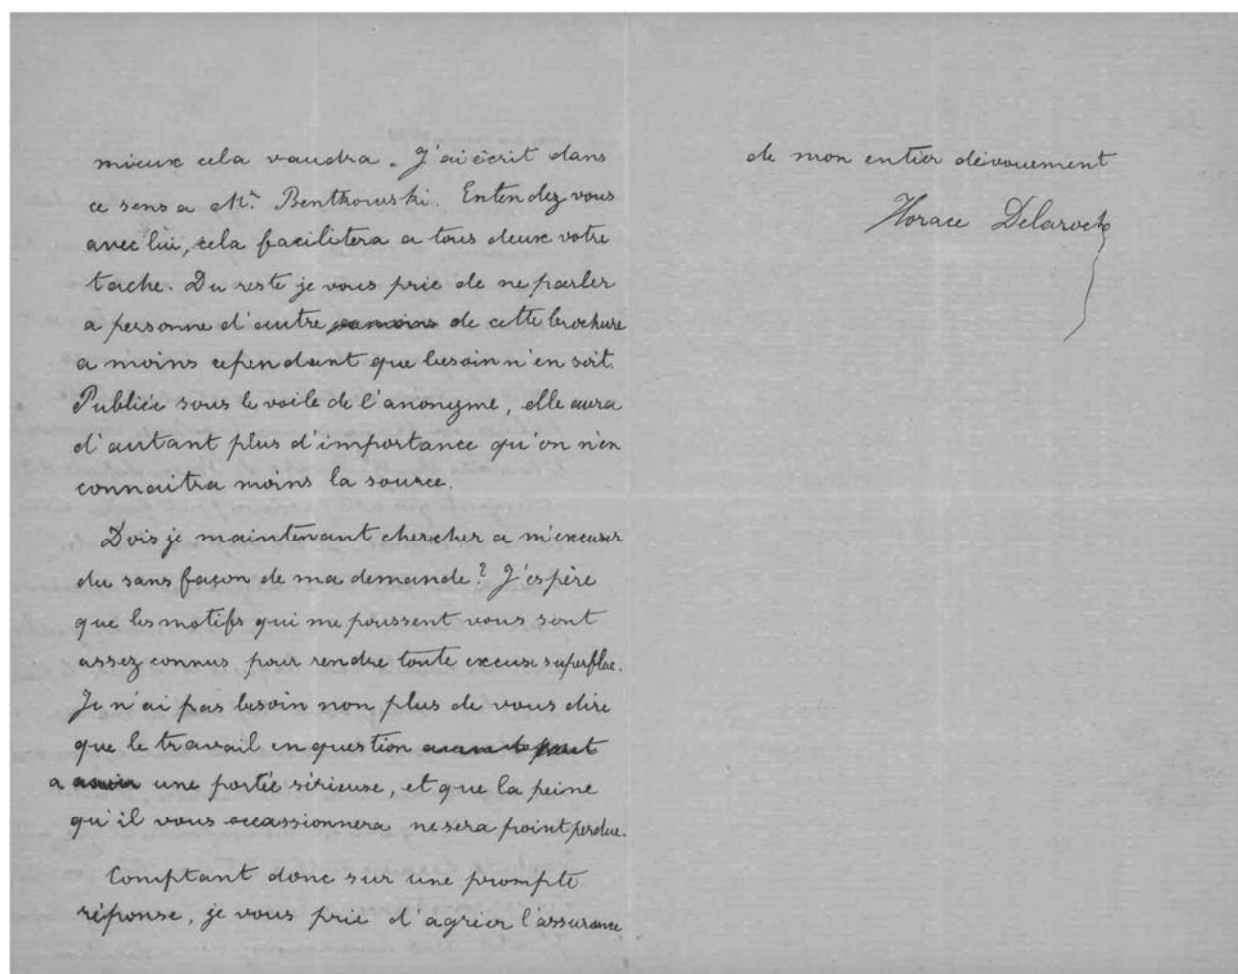 mieux cela vaudra. J'ai écrit dans
ce sens a Mr. Bentkowski. Entendez vous
avec lui, cela facilitera a tous deux votre
tache. Du reste je vous prie de ne parler
a personne d'autre de cette brochure
a moins cependant que besoin n'en soit.
Publiée sous le voile de l'anonyme, elle aura
d'autant plus d'importance qu'on n'en
connaitra moins la source.
Dois je maintenant chercher a m'excuser
du sans façon de ma demande? J'espère
que les motifs qui me poussent vous sont
assez connus pour rendre toute excuse superflue.
Je n'ai pas besoin non plus de vous dire
que le travail en question
a une portée sérieuse, et que la peine
qu'il vous occassionnera ne sera point perdue.
Comptant donc sur une prompte
réponse, je vous prie d'agréer l'assurance
de mon entier dévouement
Horace Delaroche